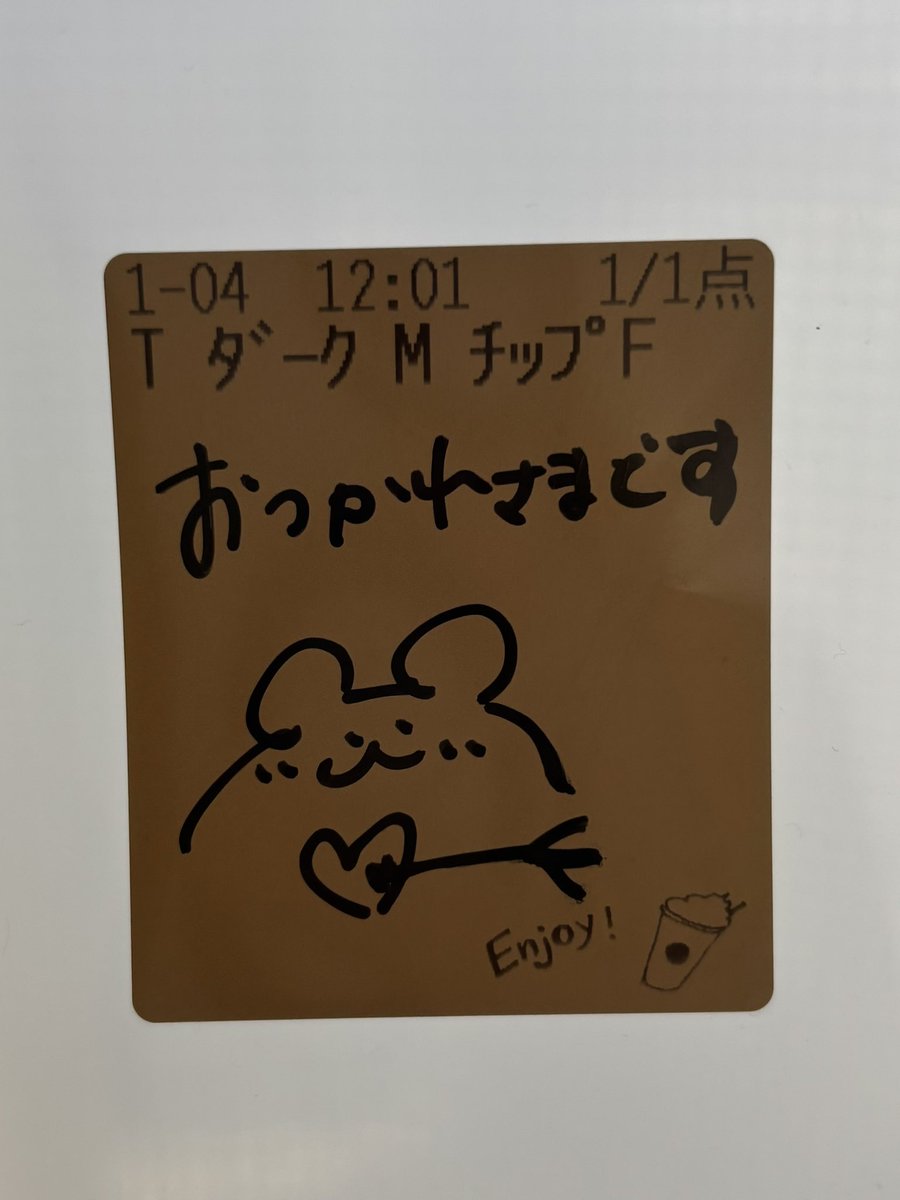 1-04 12:01 1/1点
T ダーク M チップ F
おつかれさまです
Enjoy!